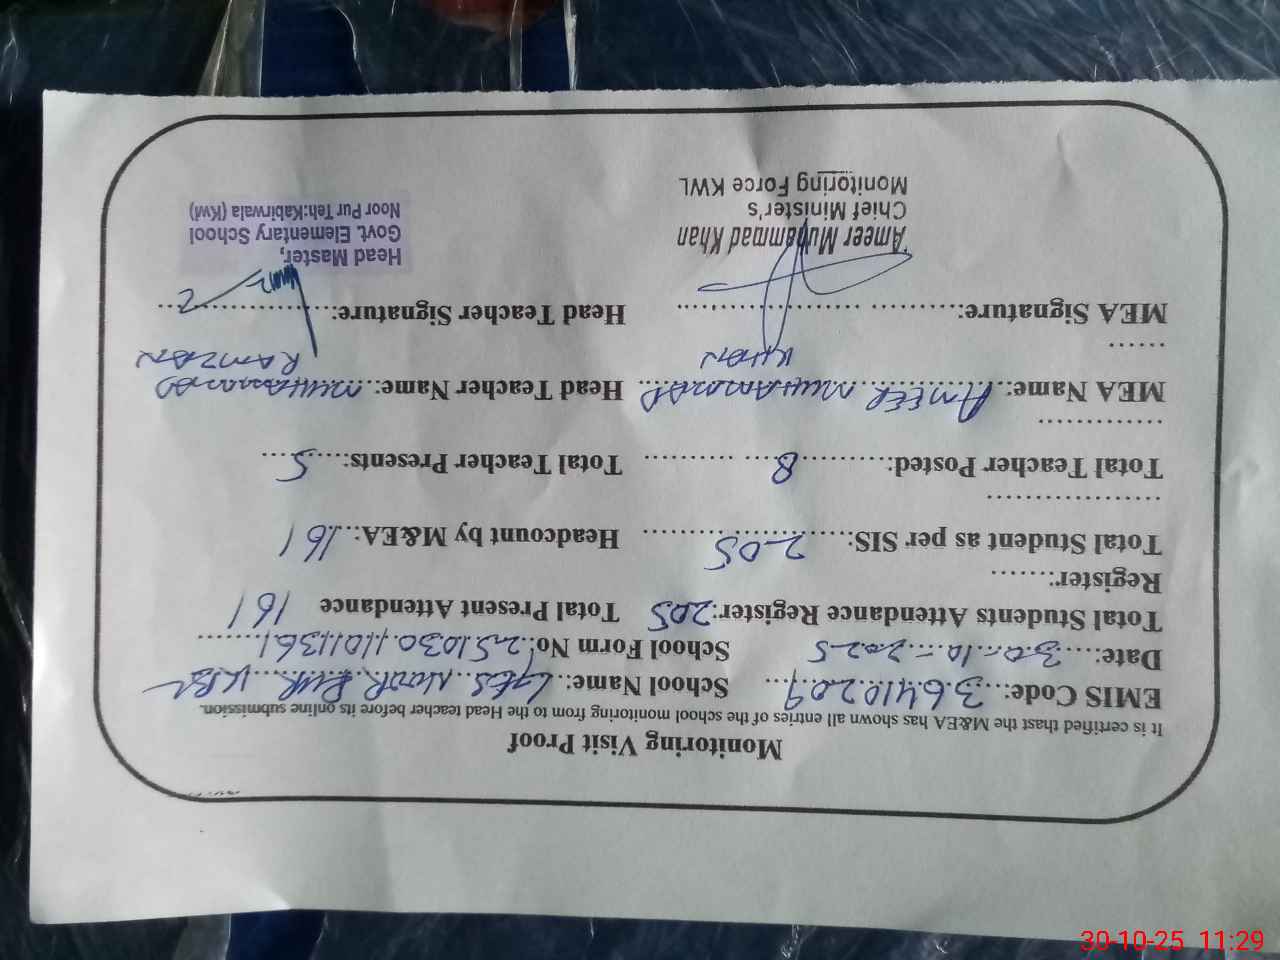 Monitoring Visit Proof
It is certified thast the M&EA has shown all entries of the school monitoring from to the Head teacher before its online submission.
EMIS Code:...36410209... School Name:..GES NOOR PUR KBL
Date:....30-10-2025 School Form No:.25103011011361
Total Students Attendance Register:205 Total Present Attendance 161
Register:......
Total Student as per SIS:......205...... Headcount by M&EA:..161
Total Teacher Posted:..........8... ......... Total Teacher Presents:......5...
MEA Name:..AMEER MUHAMMAD... Head Teacher Name:..MUHAMMAD
KHAN RAMZAN
MEA Signature:......... .................. Head Teacher Signature:..................
Ameer Muhammad Khan
Chief Minister's
Monitoring Force KWL
Head Master,
Govt. Elementary School
Noor Pur Teh:Kabirwala (Kwl)
30-10-25 11:29